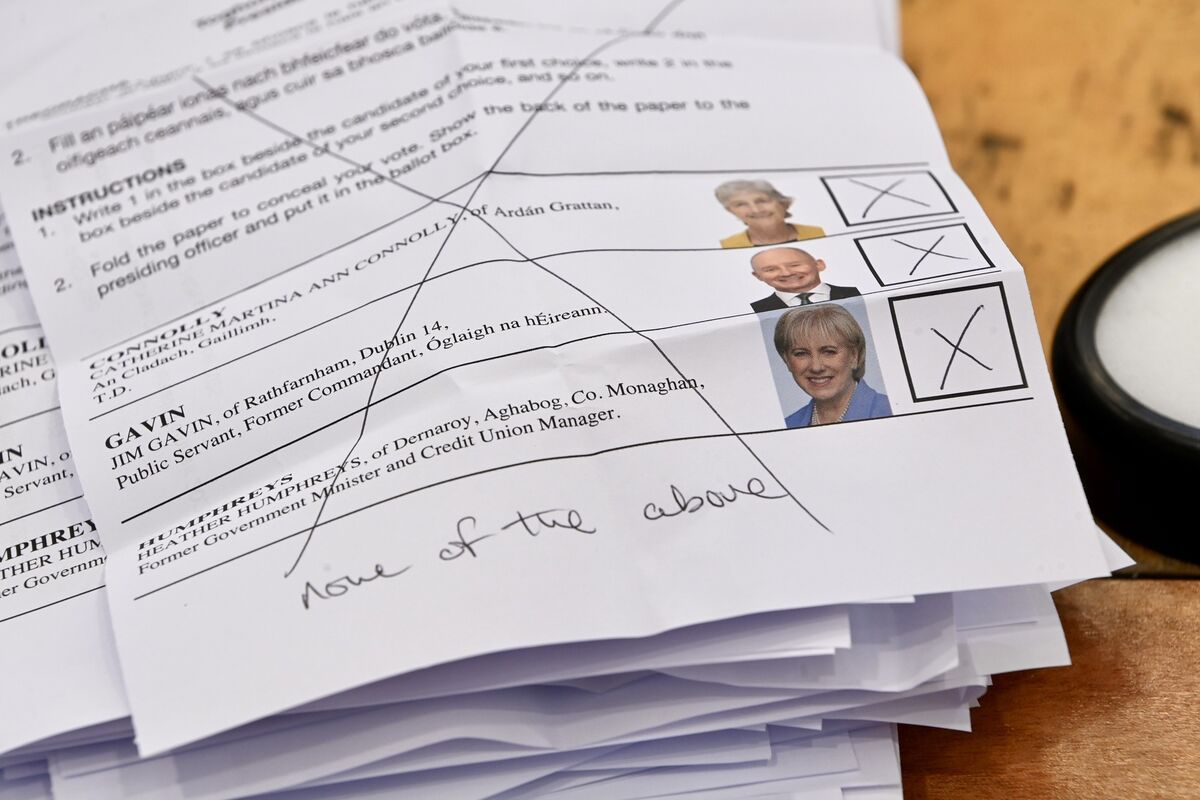 2. Fill an páipéar ionas nach bhfeicfear do vóta.
oifigeach ceannais, agus cuir sa bhosca ballóide
INSTRUCTIONS
1. Write 1 in the box beside the candidate of your first choice, write 2 in the
box beside the candidate of your second choice, and so on.
2. Fold the paper to conceal your vote. Show the back of the paper to the
presiding officer and put it in the ballot box.
CONNOLLY
CATHERINE MARTINA ANN CONNOLLY, of Ardán Grattan,
An Cladach, Gaillimh.
T.D.
GAVIN
JIM GAVIN, of Rathfarnham, Dublin 14,
Public Servant, Former Commandant, Óglaigh na hÉireann.
HUMPHREYS
HEATHER HUMPHREYS, of Dernaroy, Aghabog, Co. Monaghan,
Former Government Minister and Credit Union Manager.
none of the above